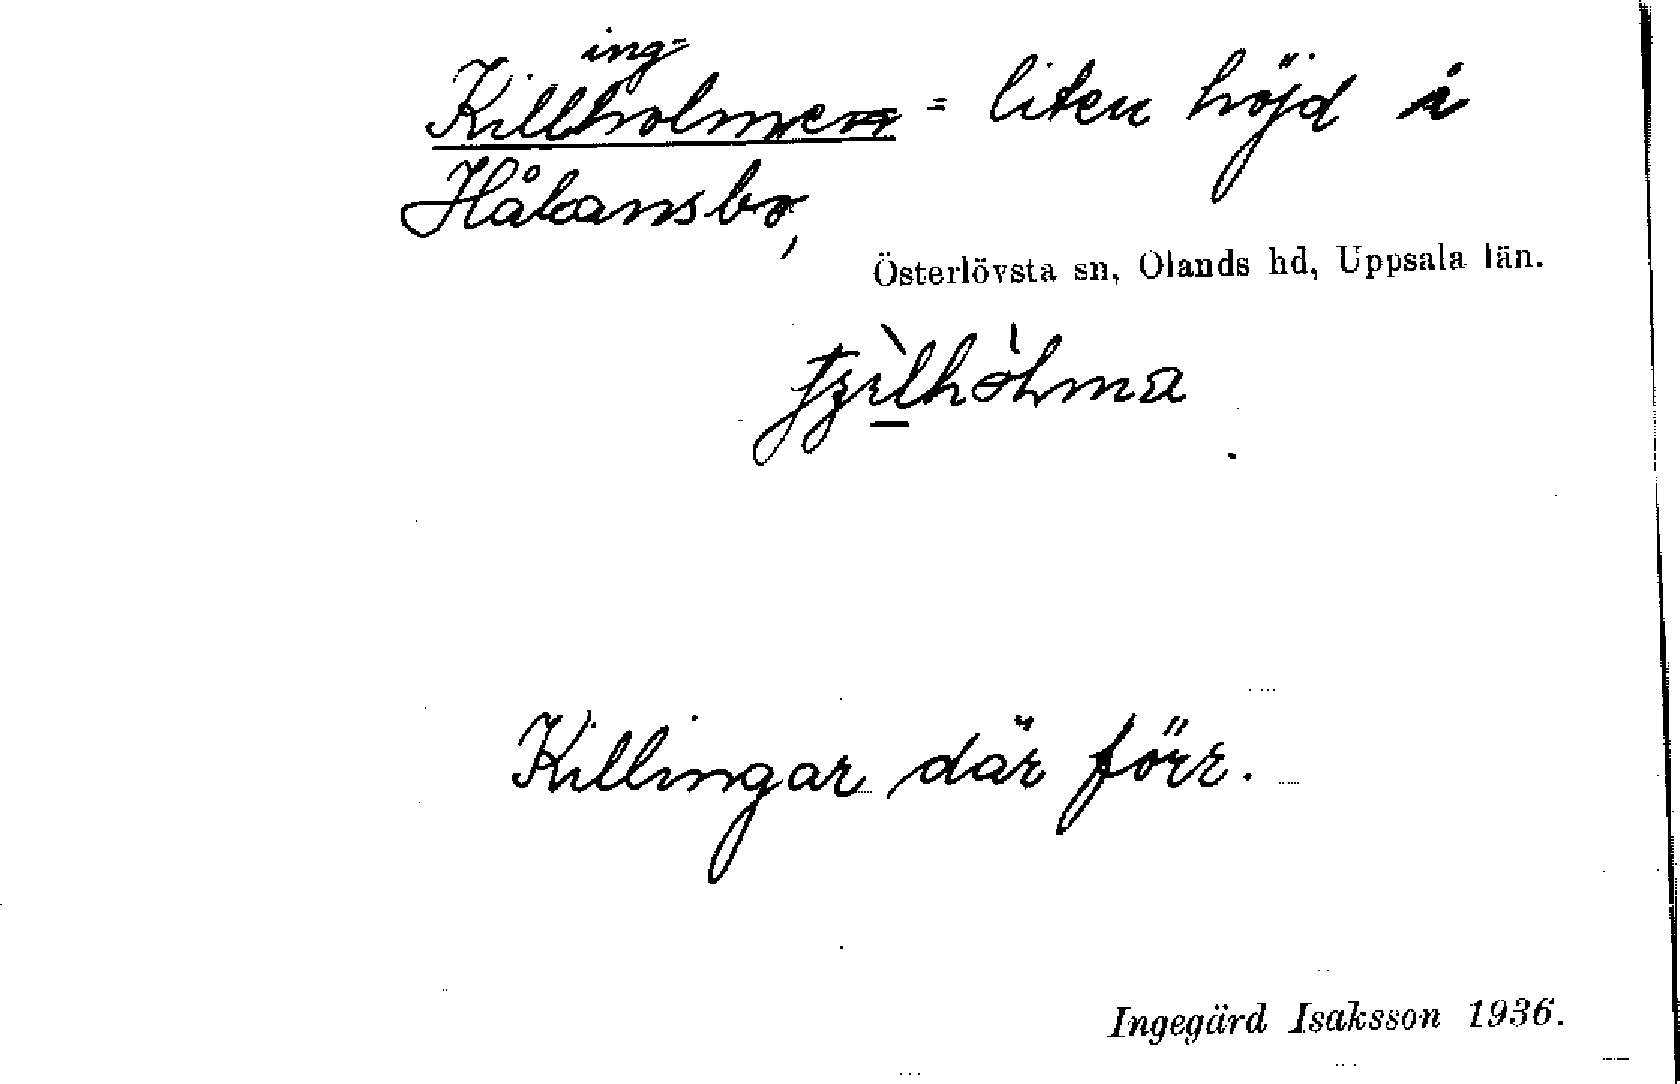 Killingholmen = liten höjd i
Håkansbo,
Österlövsta sn, Olands hd, Uppsala län.
Killingar där förr.
Ingegärd Isaksson 1936.